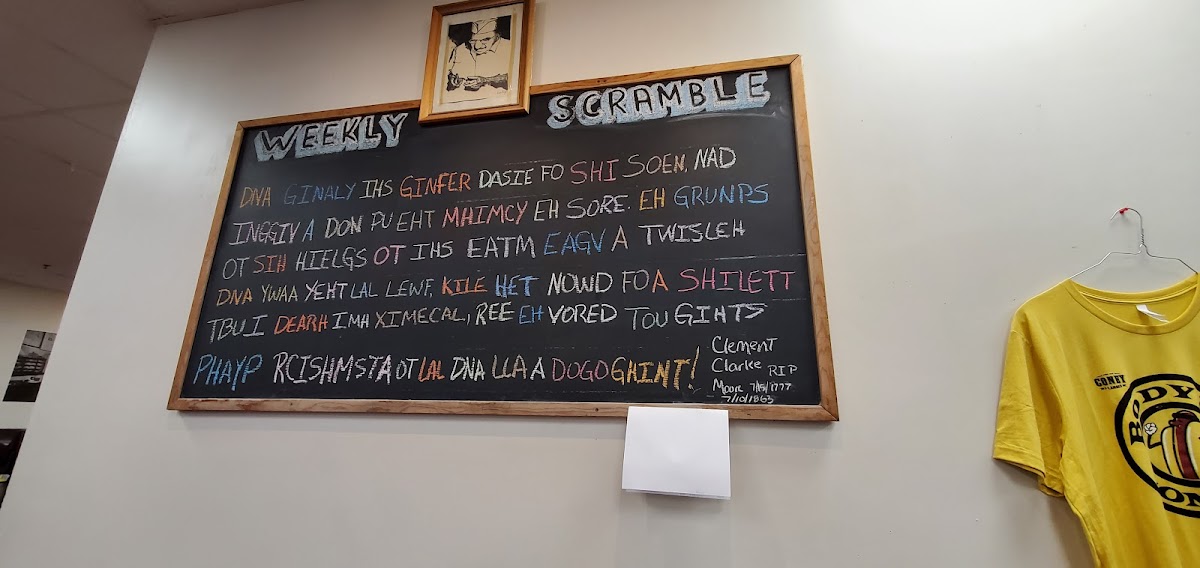 WEEKLY SCRAMBLE
DNA GINALY IHS GINFER DASIE FO SHI SOEN, NAD
INGGIV A DON PU EHT MHIMCY EH SORE. EH GRUNPS
OT SIH HIELGS OT IHS EATM EAGV A TWISLEH
DNA YWAA YEHT LAL LEWF, KILE HET NOWD FO A SHILETT
TBU I DEARH IMH XIMECAL, REE EH VORED TOU GIHTS
PHAYP RCISHMSTA OT LAL DNA LLA A DOGO GHINT!
Clement
Clarke RIP
Moore 7/15/1777
7/10/1863
CONEY
BODY